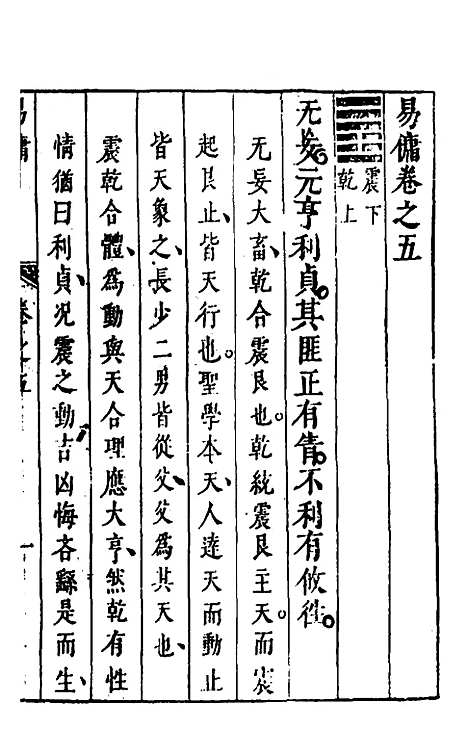 易傭卷之五
震下
乾上
无妄。元亨利貞。其匪正有眚。不利有攸往。
无妄大畜、乾合震艮也。乾統震艮主天。而震
起艮止、皆天行也。聖學本天、人達天而動止
皆天象之、長少二男皆從父、父為其天也、
震乾合體、為動與天合理應大亨、然乾有性
情猶曰利貞、况震之動吉凶悔吝繇是而生、
易傭
卷之五
一